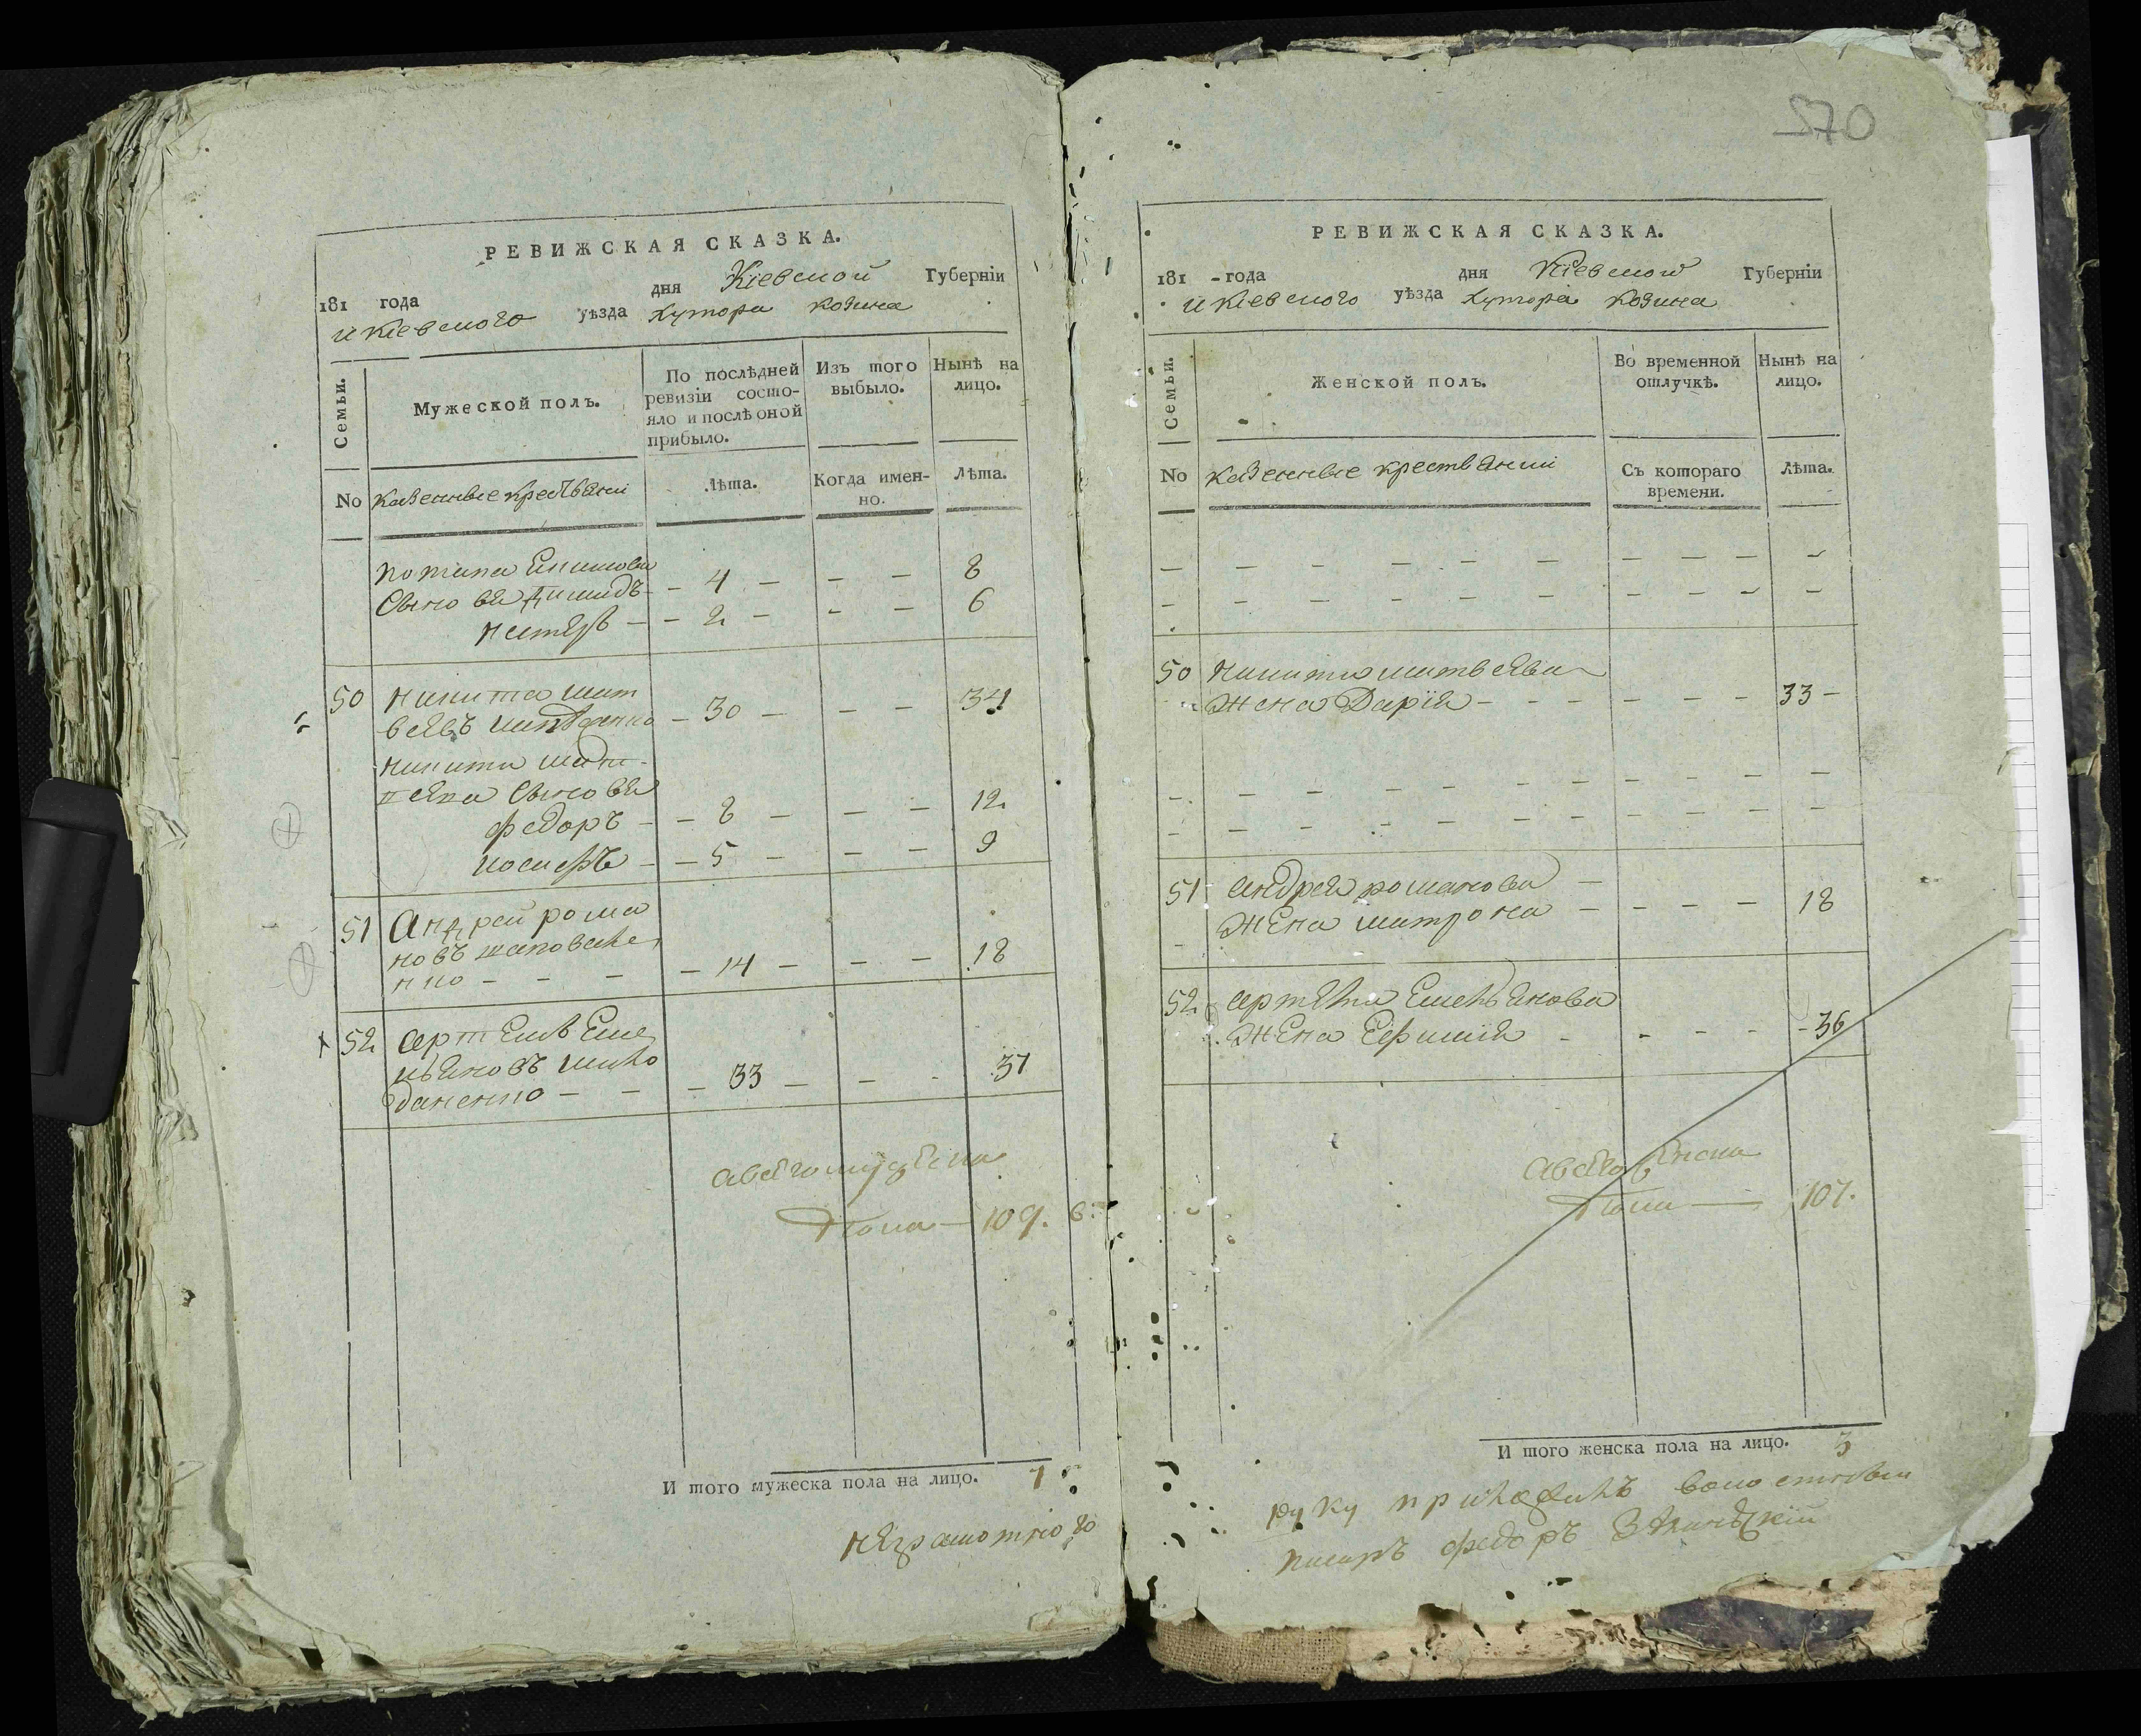 570
РЕВИЖСКАЯ СКАЗКА.
181 года дня Кіевской Губерніи
и Кіевского уѣзда хутора козина
Семьи.
Мужеской полъ.
По послѣдней ревизіи состо-
яло и послѣ оной
прибыло.
Изъ того
выбыло.
Нынѣ на
лицо.
No казенные крестьяни
Лѣта.
Когда имен-
но.
Лѣта.
потапа
Сыновя - 4 - - - 8
нестеръ - - 2 - - - 6
50 никита мат
веевъ - 30 - - - 34
никити
сыновя
федоръ - - 8 - - - 12
иосифъ - - 5 - - - 9
51 Андрей рома
новъ шаповале
нко - - - - 14 - - - 18
52 артемъ Еме
льяновъ
- - - 33 - - - 37
Авсего мужеска
Пола - 109.
И того мужеска пола на лицо. 7
неграмотного
РЕВИЖСКАЯ СКАЗКА.
181 - года дня Кіевской Губерніи
и Кіевского уѣзда хутора козина
Семьи.
Женской полъ.
Во временной
отлучкѣ.
Нынѣ на
лицо.
No казенные крестьянии
Съ котораго
времени.
Лѣта.
50 никиты матвеева
жена Дарія - - - - - - 33 -
51 андрея романова -
жена матрона - - - - 18
52 артема Емельянова
жена Ефимія - - - - - 36
Авсего женска
Пола - 107.
И того женска пола на лицо. 3
руку приложилъ волостный
писаръ федоръ